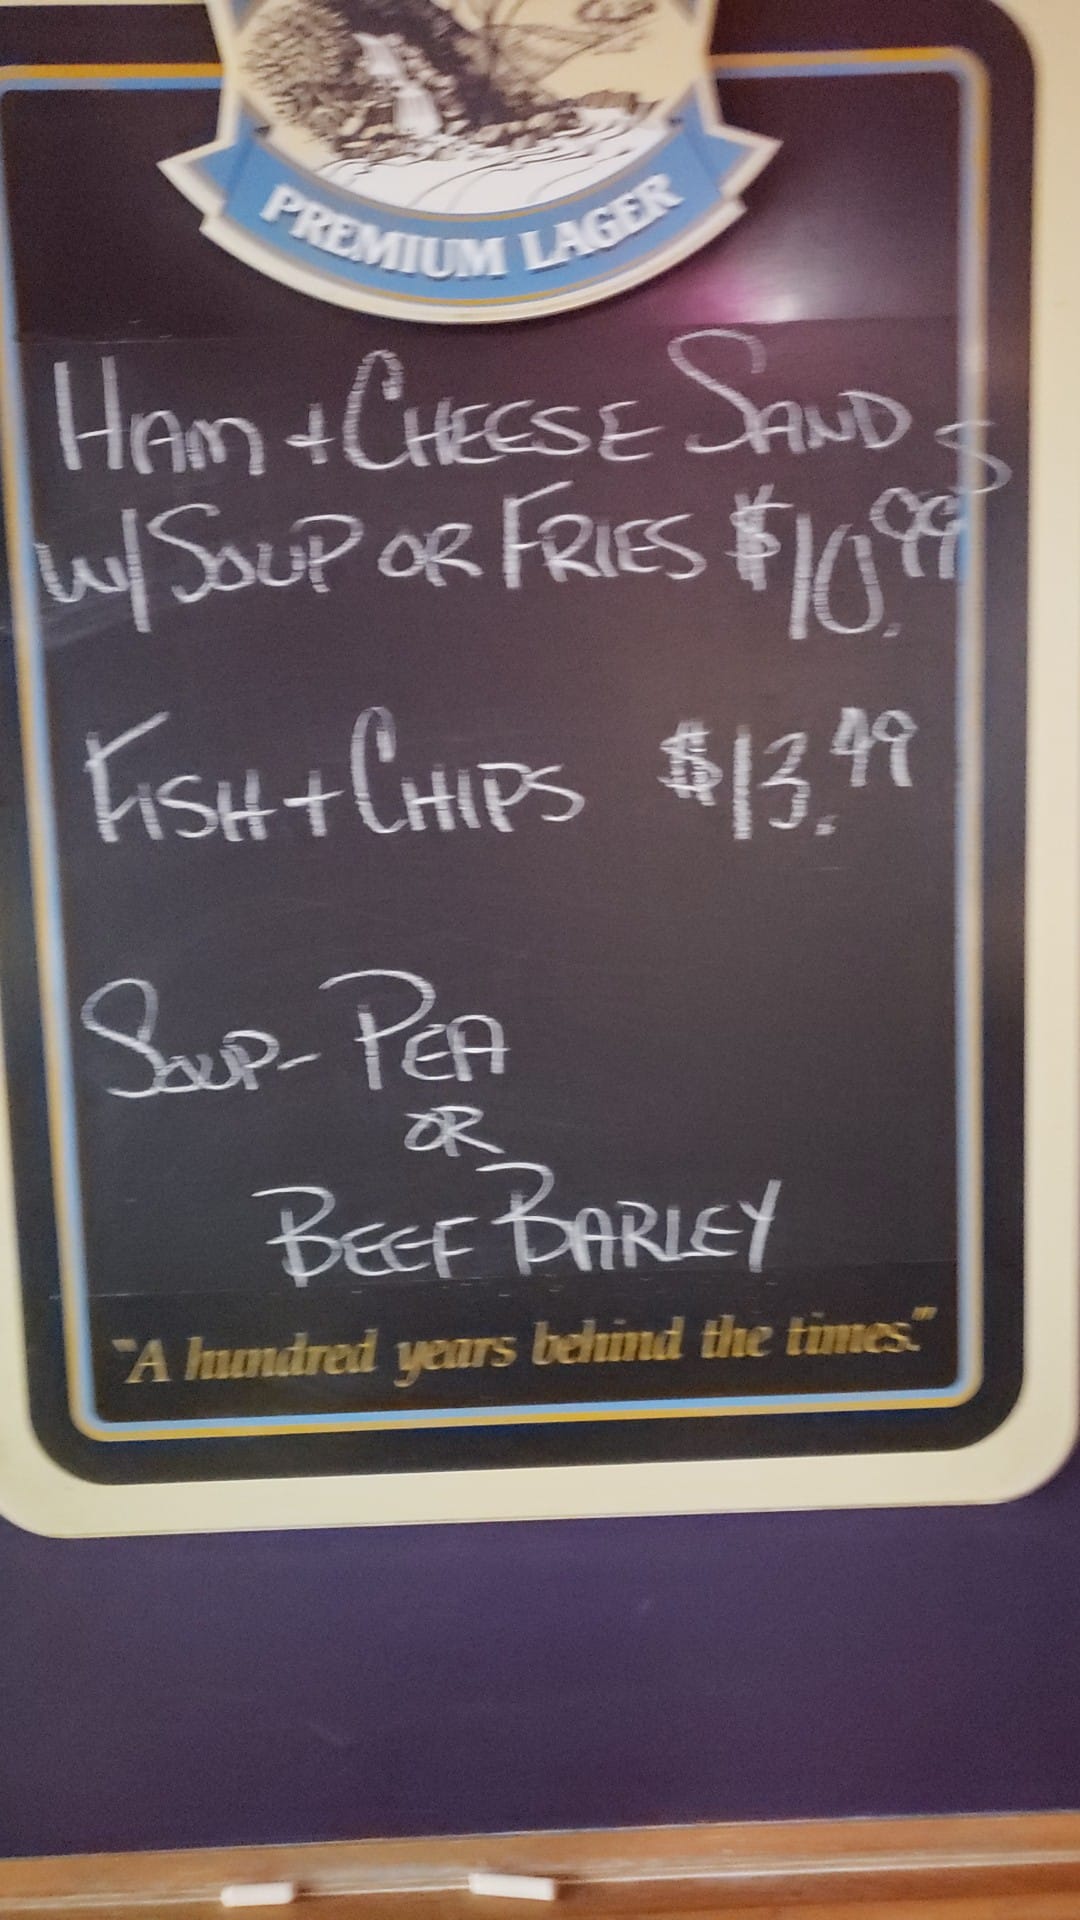 PREMIUM LAGER
HAM + CHEESE SAND
W/ SOUP OR FRIES $10.99
FISH + CHIPS $13.49
SOUP - PEA
OR
BEEF BARLEY
"A hundred years behind the times."